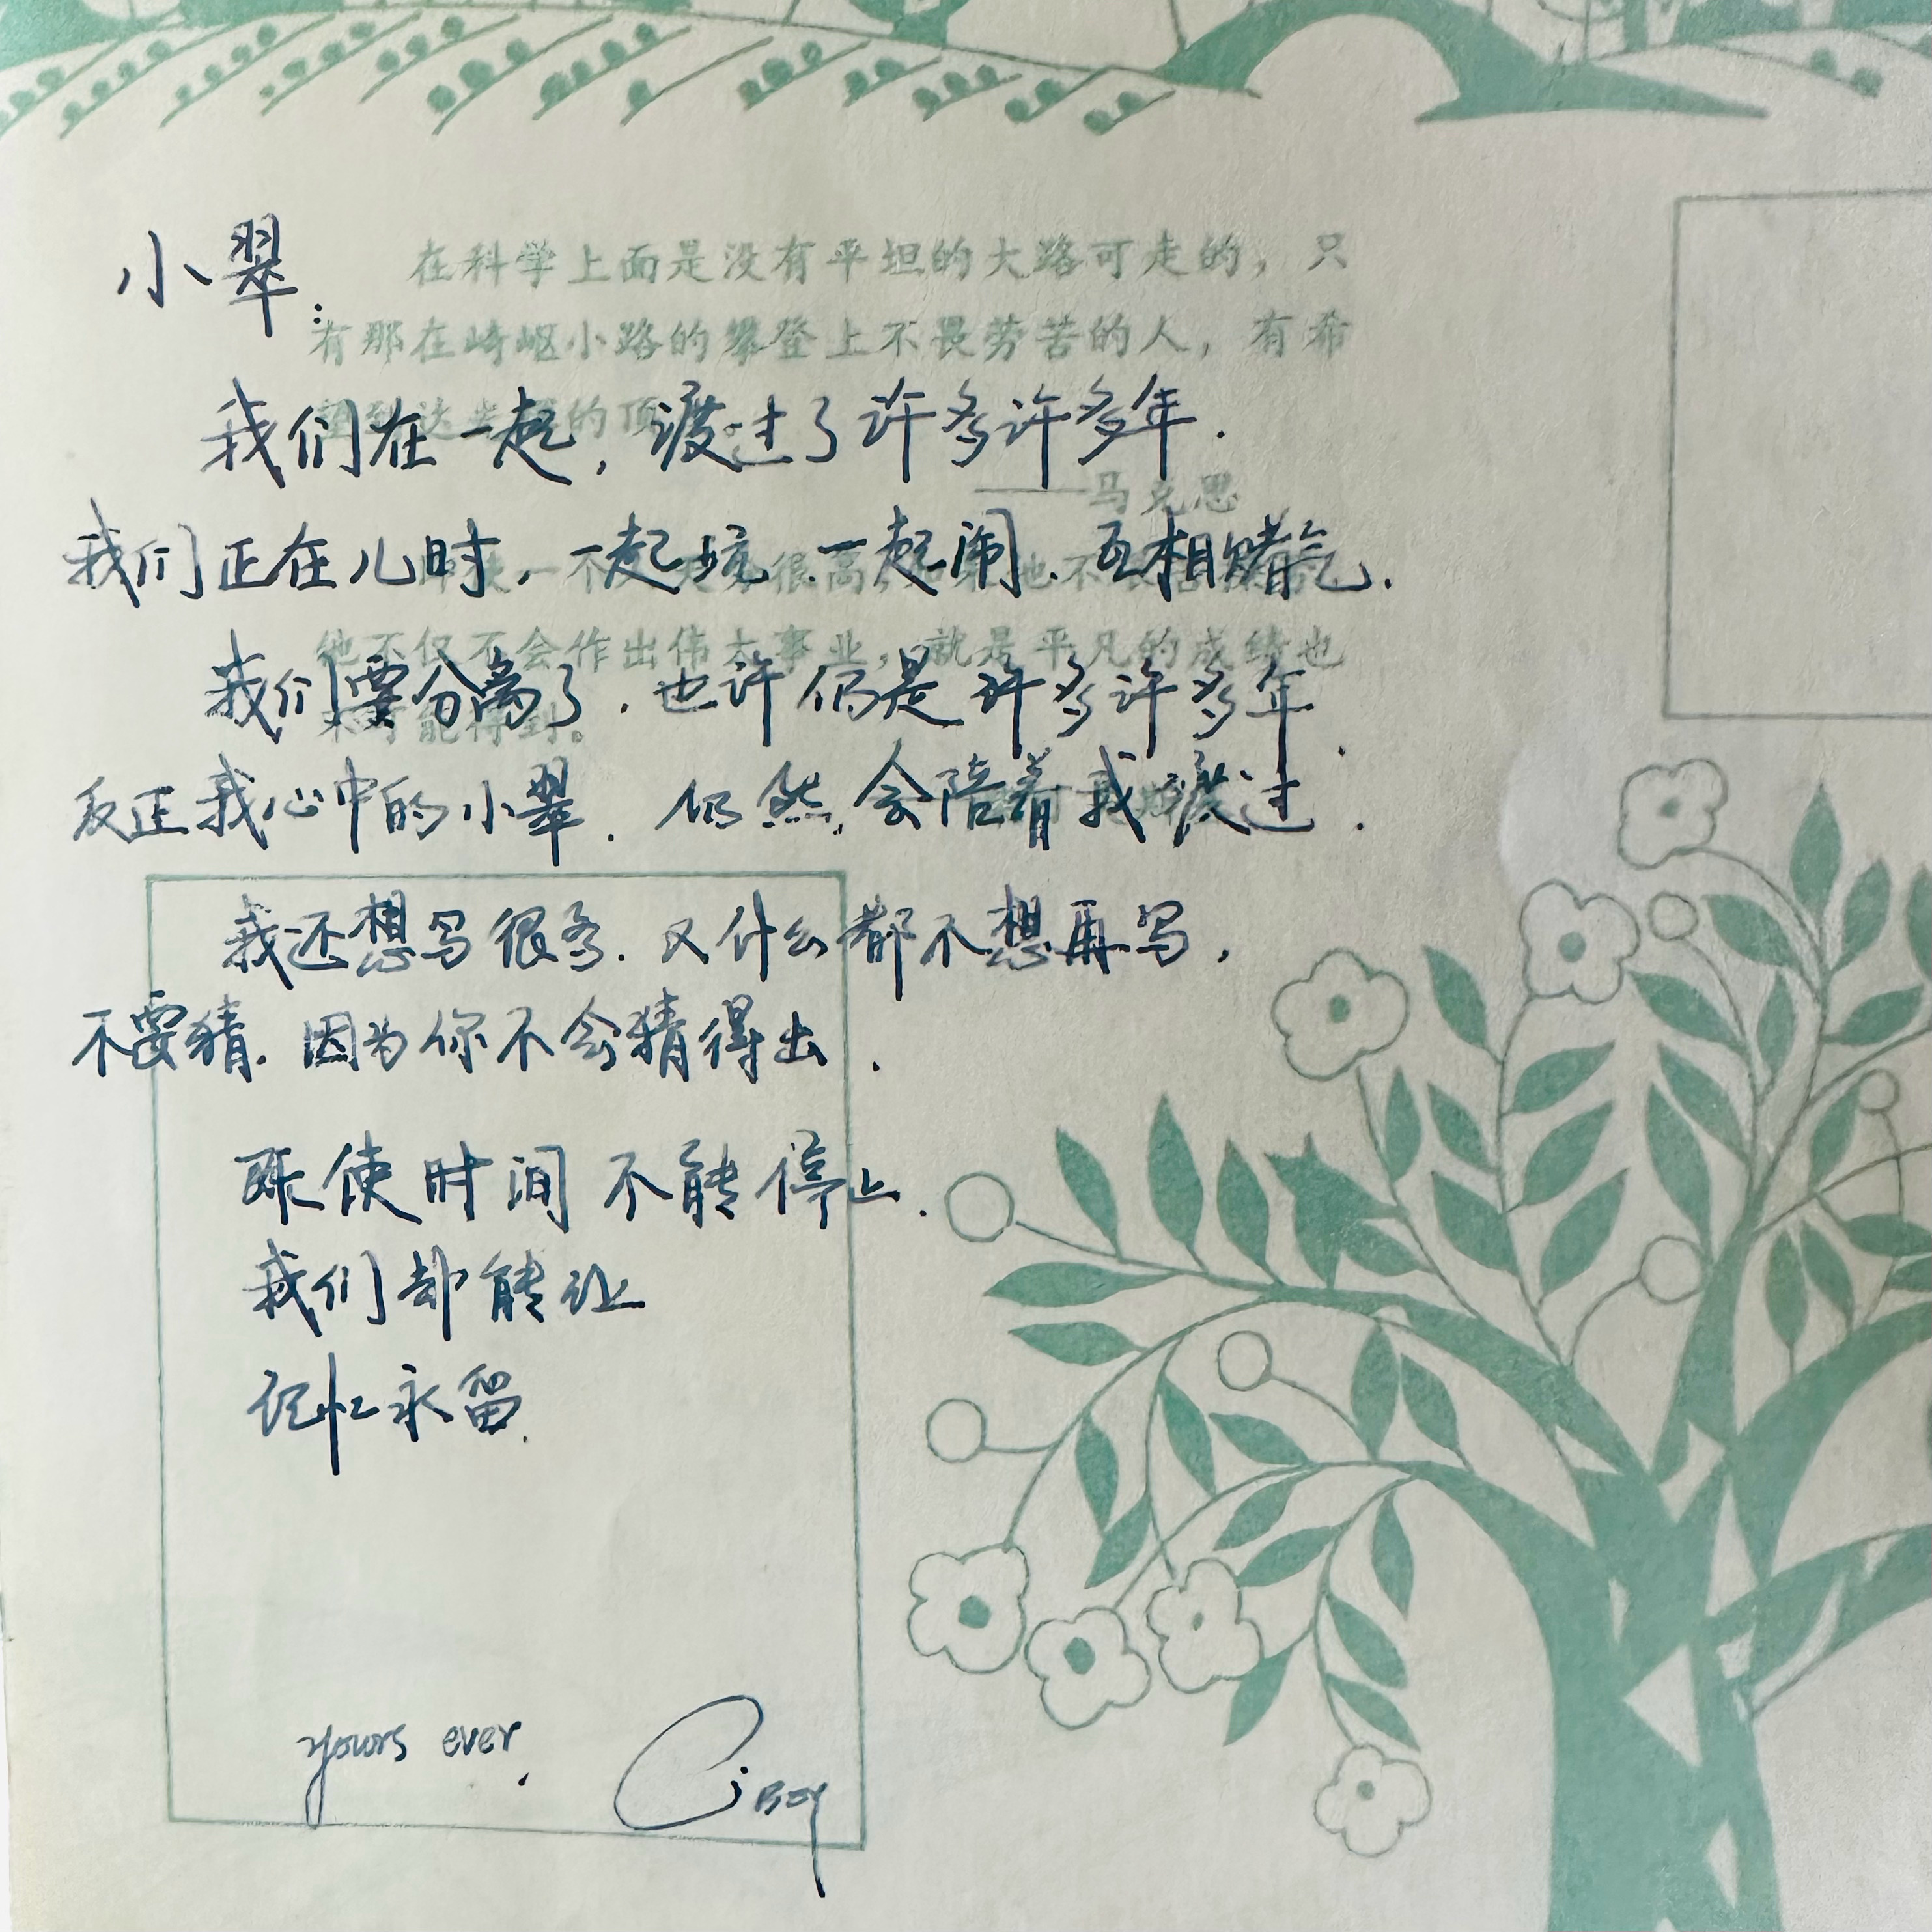 小翠：
在科学上面是没有平坦的大路可走的，只
有那在崎岖小路的攀登上不畏劳苦的人，有希
的顶
我们在一起，渡过了许多许多年．
——马克思
我们正在儿时，一起 一起闹．互相赌气．
他不仅不会作出伟大事业，就是平凡的成绩也
我们要分离了．也许仍是许多许多年．
不可能得到。
反正我心中的小翠．仍然会陪着我渡过．
我还想写很多．又什么都不想再写．
不要猜．因为你不会猜得出．
使时间不能停止．
我们却能让
记忆永留．
yours ever,